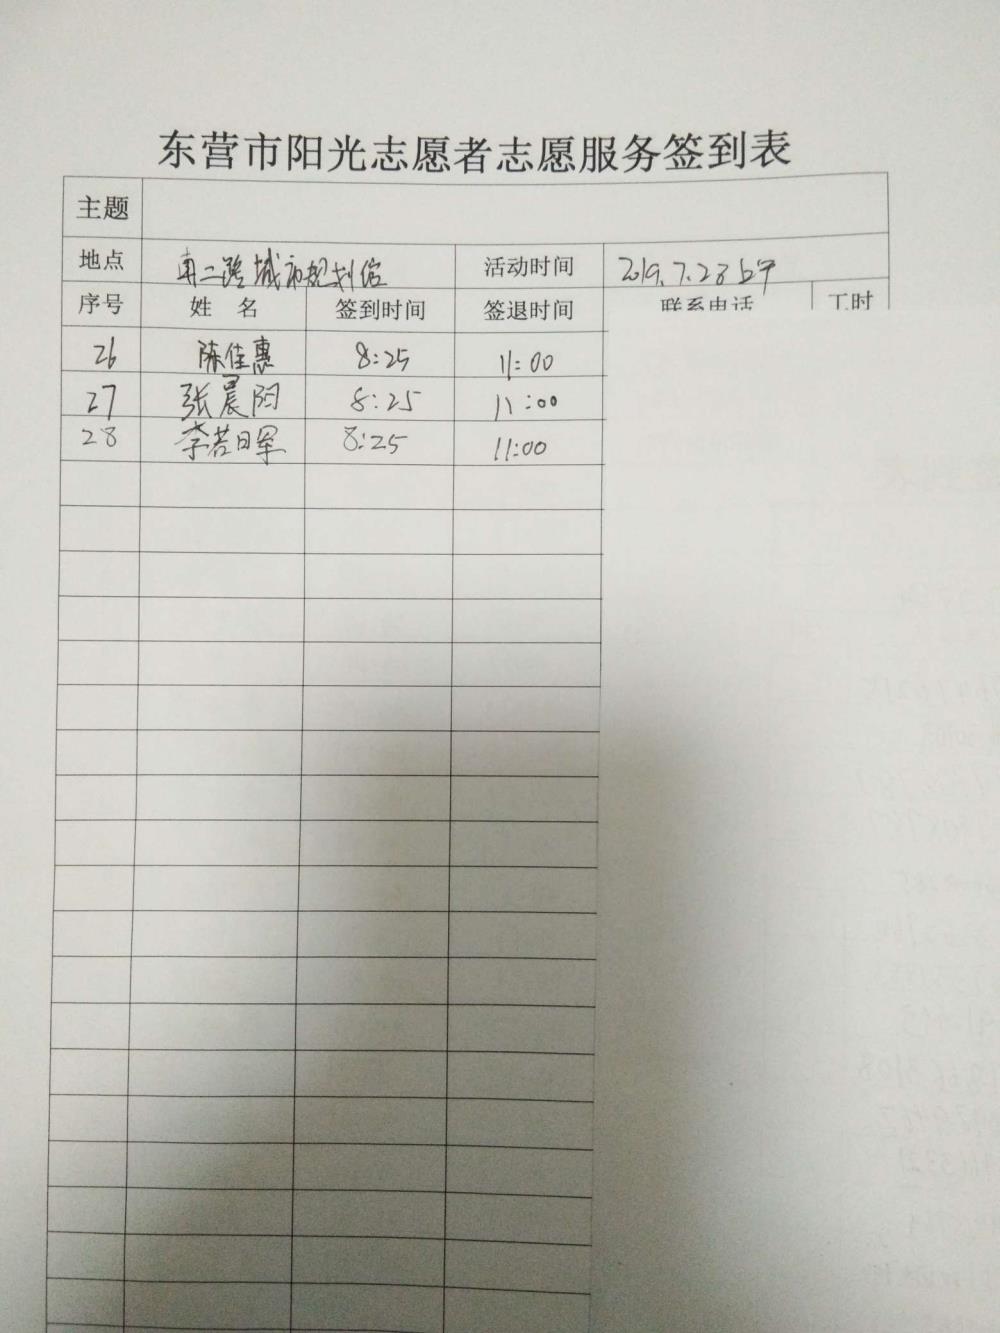 东营市阳光志愿者志愿服务签到表
主题
地点 南二路城市规划馆 活动时间 2019.7.28上午
序号 姓名 签到时间 签退时间 联系电话 工时
26 陈佳惠 8:25 11:00
27 张晨阳 8:25 11:00
28 李若日军 8:25 11:00